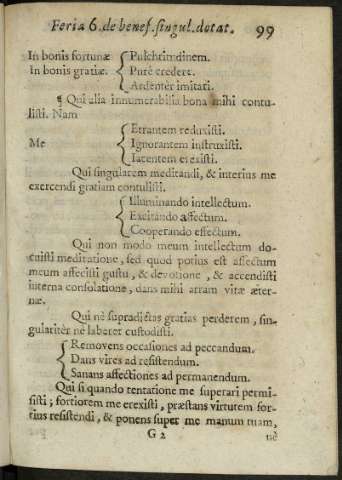 Feria 6. de benef. singul. dotat. 99
In bonis fortunæ { Pulchritudinem.
In bonis gratiæ. { Purè credere.
{ Ardenter imitati.
¶ Qui alia innumerabilia bona mihi contulisti. Nam
{ Errantem reduxisti.
Me { Ignorantem instruxisti.
{ Iacentem erexisti.
Qui singularem meditandi, & interius me
exercendi gratiam contulisti.
{ Illuminando intellectum.
{ Excitando affectum.
{ Cooperando effectum.
Qui non modo meum intellectum do-
cuisti meditatione, sed quod potius est affectum
meum affecisti gustu, & devotione, & accendisti
interna consolatione, dans mihi arram vitæ æter-
næ.
Qui nè supradictas gratias perderem, sin-
gulariter ne laberer custodisti.
{ Removens occasiones ad peccandum.
{ Dans vires ad resistendum.
{ Sanans affectiones ad permanendum.
Qui si quando tentatione me superari permi-
sisti; fortiorem me erexisti, præstans virtutem for-
tius resistendi, & ponens super me manum tuam,
G 2 nè